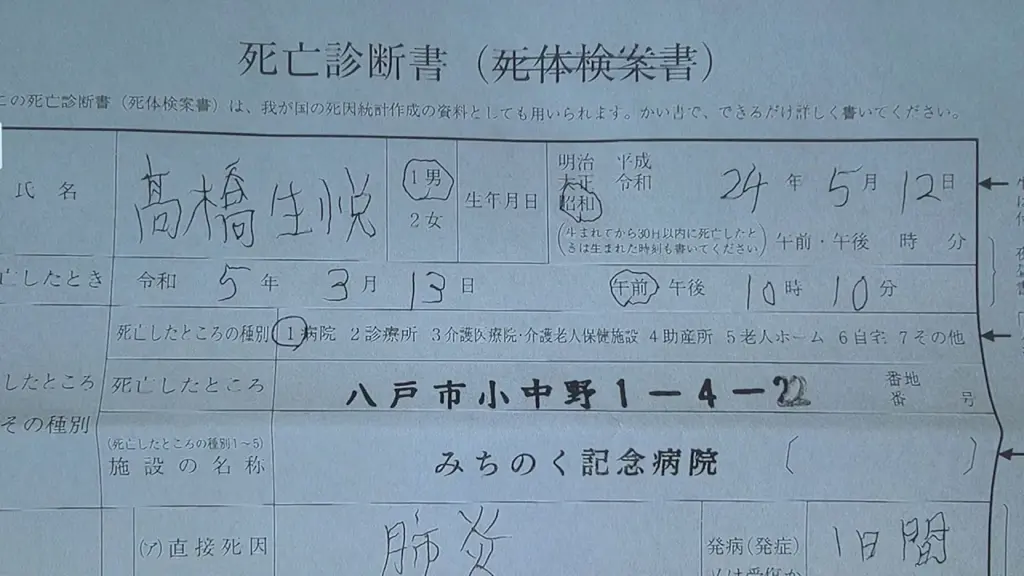 死亡診断書（死体検案書）
この死亡診断書（死体検案書）は、我が国の死因統計作成の資料としても用いられます。かい書で、できるだけ詳しく書いてください。
氏名 髙橋生悦 1男 2女 生年月日 明治 平成 大正 令和 昭和 24年 5月 12日
（生まれてから30日以内に死亡したときは生まれた時刻も書いてください） 午前・午後 時 分
亡したとき 令和 5年 3月 13日 午前 午後 10時 10分
死亡したところの種別 1病院 2診療所 3介護医療院・介護老人保健施設 4助産所 5老人ホーム 6自宅 7その他
したところ 死亡したところ 八戸市小中野1－4－22 番地 番 号
その種別 （死亡したところの種別1～5） 施設の名称 みちのく記念病院 （ ）
(ア)直接死因 肺炎 発病（発症） 1日間